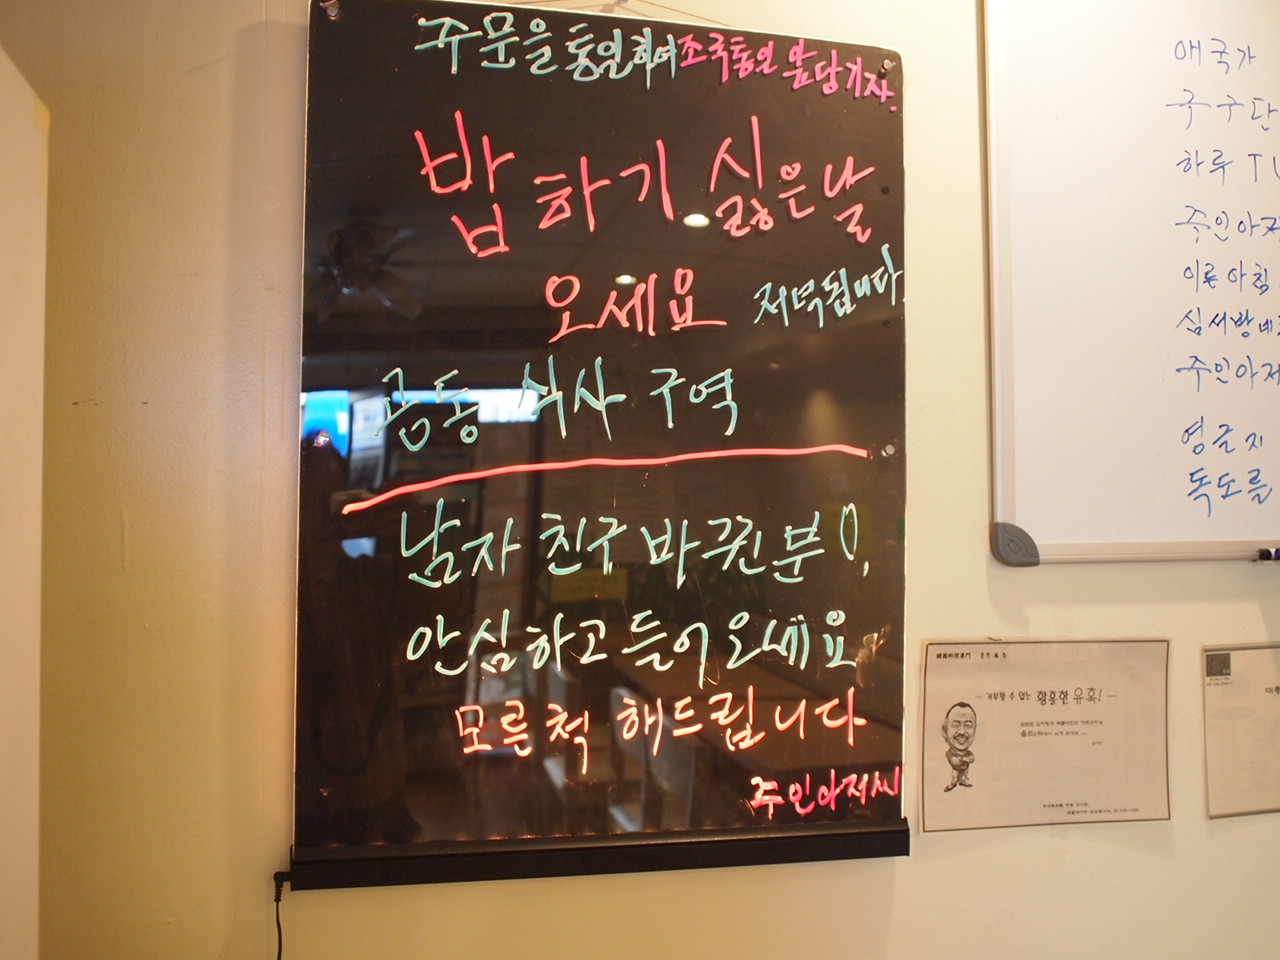 주문을 통일하여 조국통일 앞당기자.
밥 하기 싫은 날
오세요 저녁됩니다.
공동 식사 구역
남자 친구 바뀐분!,
안심하고 들어오세요
모른척 해드립니다
주인아저씨
애국가
구구단
하루 TV
주인아저
이른아침
심서방네
주인아저
영글지
독도를
거부할 수 없는 황홀한 유혹!